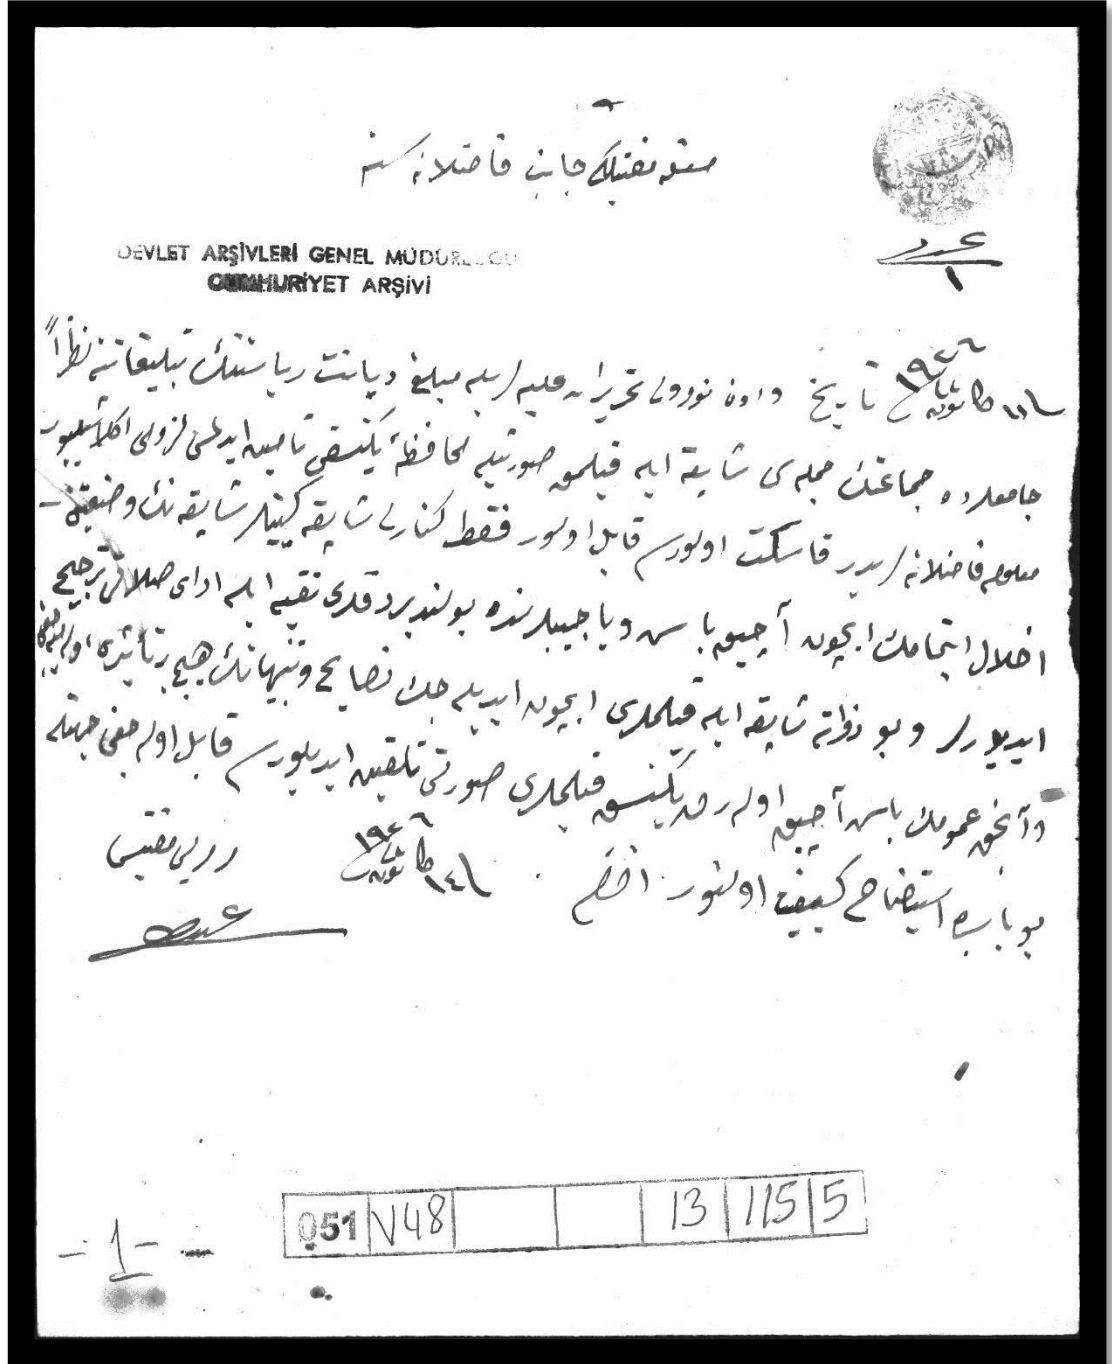 مفتيلك جانب فاضلانه سنه
عدد
١
DEVLET ARŞİVLERİ GENEL MÜDÜRLÜĞÜ
CUMHURİYET ARŞİVİ
كانون ١٩٢٦ تاريخ تحريرات عليه لريله مبلغ ديانت رياستنك تبليغاتنه نظراً
جامعلرده جماعتك جمله سى شابقه ايله قيلمق صورتيله محافظۀ يكنسقى تأمين ايدلمسى لزومى اكلاشيليور
معلوم فاضلانه لريدر قاسكت اولورسه قابل اولور فقط كنارلى شابقه كيينلر شابقه نك وضعيتنى
اخلال ايتمامك ايچون آچيق باش ويا جيبلرنده بولنديردقلرى تقيه ايله اداى صلاتى ترجيح
ايديورلر وبو ذواته شابقه ايله قيلملرى ايچون ايديله جك نصايح وتنبيهاتك هيچ بر تأثيرى اوله ميه جغى
وآنجق عمومك باش آچيق اوله رق يكنسق قيلملرى صورتى تلقين ايديلورسه قابل اوله جغى جهتله
بو بابده استيضاح كيفيت اولنور افندم ١٤ كانون ١٩٢٦
مفتيسى
051 V48 13 115 5
- 1 -